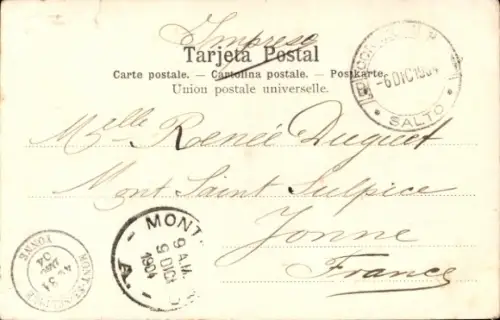 Impreso
Tarjeta Postal
Carte postale. — Cartolina postale. — Postkarte.
Union postale universelle.
CORREOS
-6 DIC 1904
* SALTO *
Mlle Renée Duguet
Mont Saint Sulpice
Yonne
France
MONT
9 A.M.
9 DIC
1904
- A. -
MONT-ST-SULPICE
31
04
YONNE